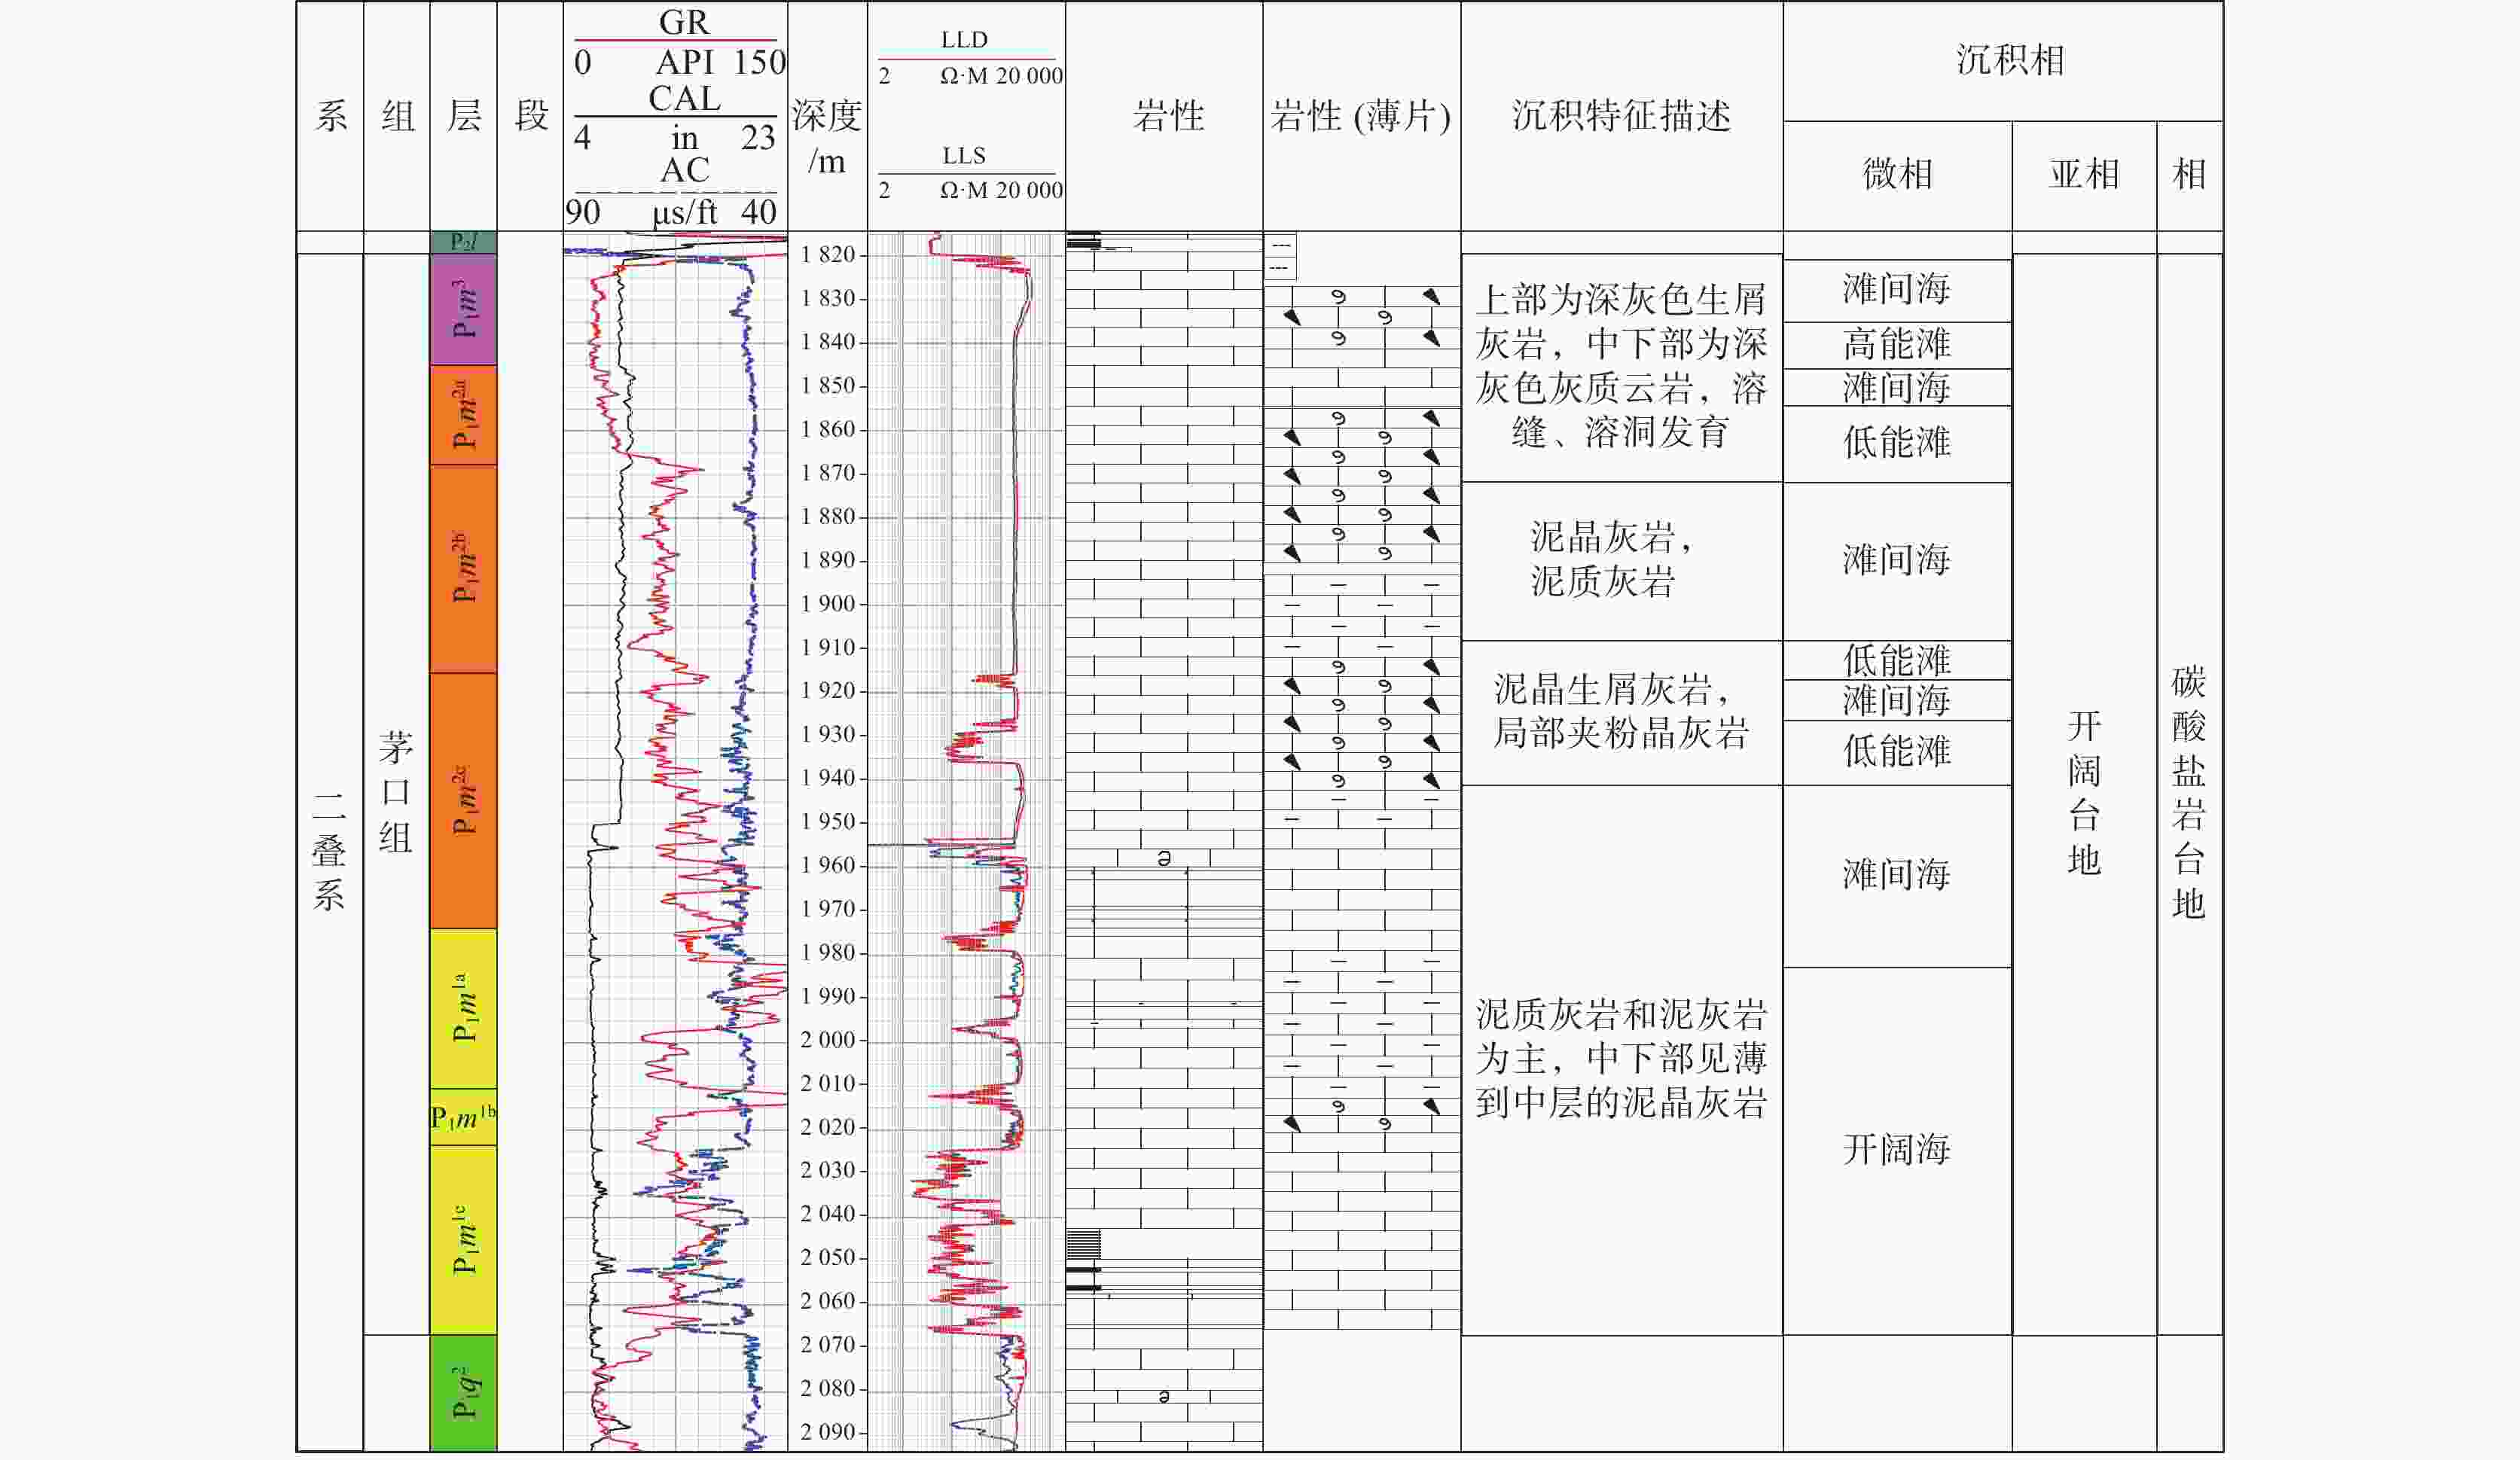 系
组
层
段
GR
0 API 150
CAL
4 in 23
AC
90 μs/ft 40
深度
/m
LLD
2 Ω·M 20 000
LLS
2 Ω·M 20 000
岩性
岩性 (薄片)
沉积特征描述
沉积相
微相
亚相
相
二叠系
茅口组
P₂l
P₁m³
P₁m²ᵃ
P₁m²ᵇ
P₁m²ᶜ
P₁m¹ᵃ
P₁m¹ᵇ
P₁m¹ᶜ
P₁q²
1 820
1 830
1 840
1 850
1 860
1 870
1 880
1 890
1 900
1 910
1 920
1 930
1 940
1 950
1 960
1 970
1 980
1 990
2 000
2 010
2 020
2 030
2 040
2 050
2 060
2 070
2 080
2 090
上部为深灰色生屑
灰岩，中下部为深
灰色灰质云岩，溶
缝、溶洞发育
泥晶灰岩，
泥质灰岩
泥晶生屑灰岩，
局部夹粉晶灰岩
泥质灰岩和泥灰岩
为主，中下部见薄
到中层的泥晶灰岩
滩间海
高能滩
滩间海
低能滩
滩间海
低能滩
滩间海
低能滩
滩间海
开阔海
开阔台地
碳酸盐岩台地